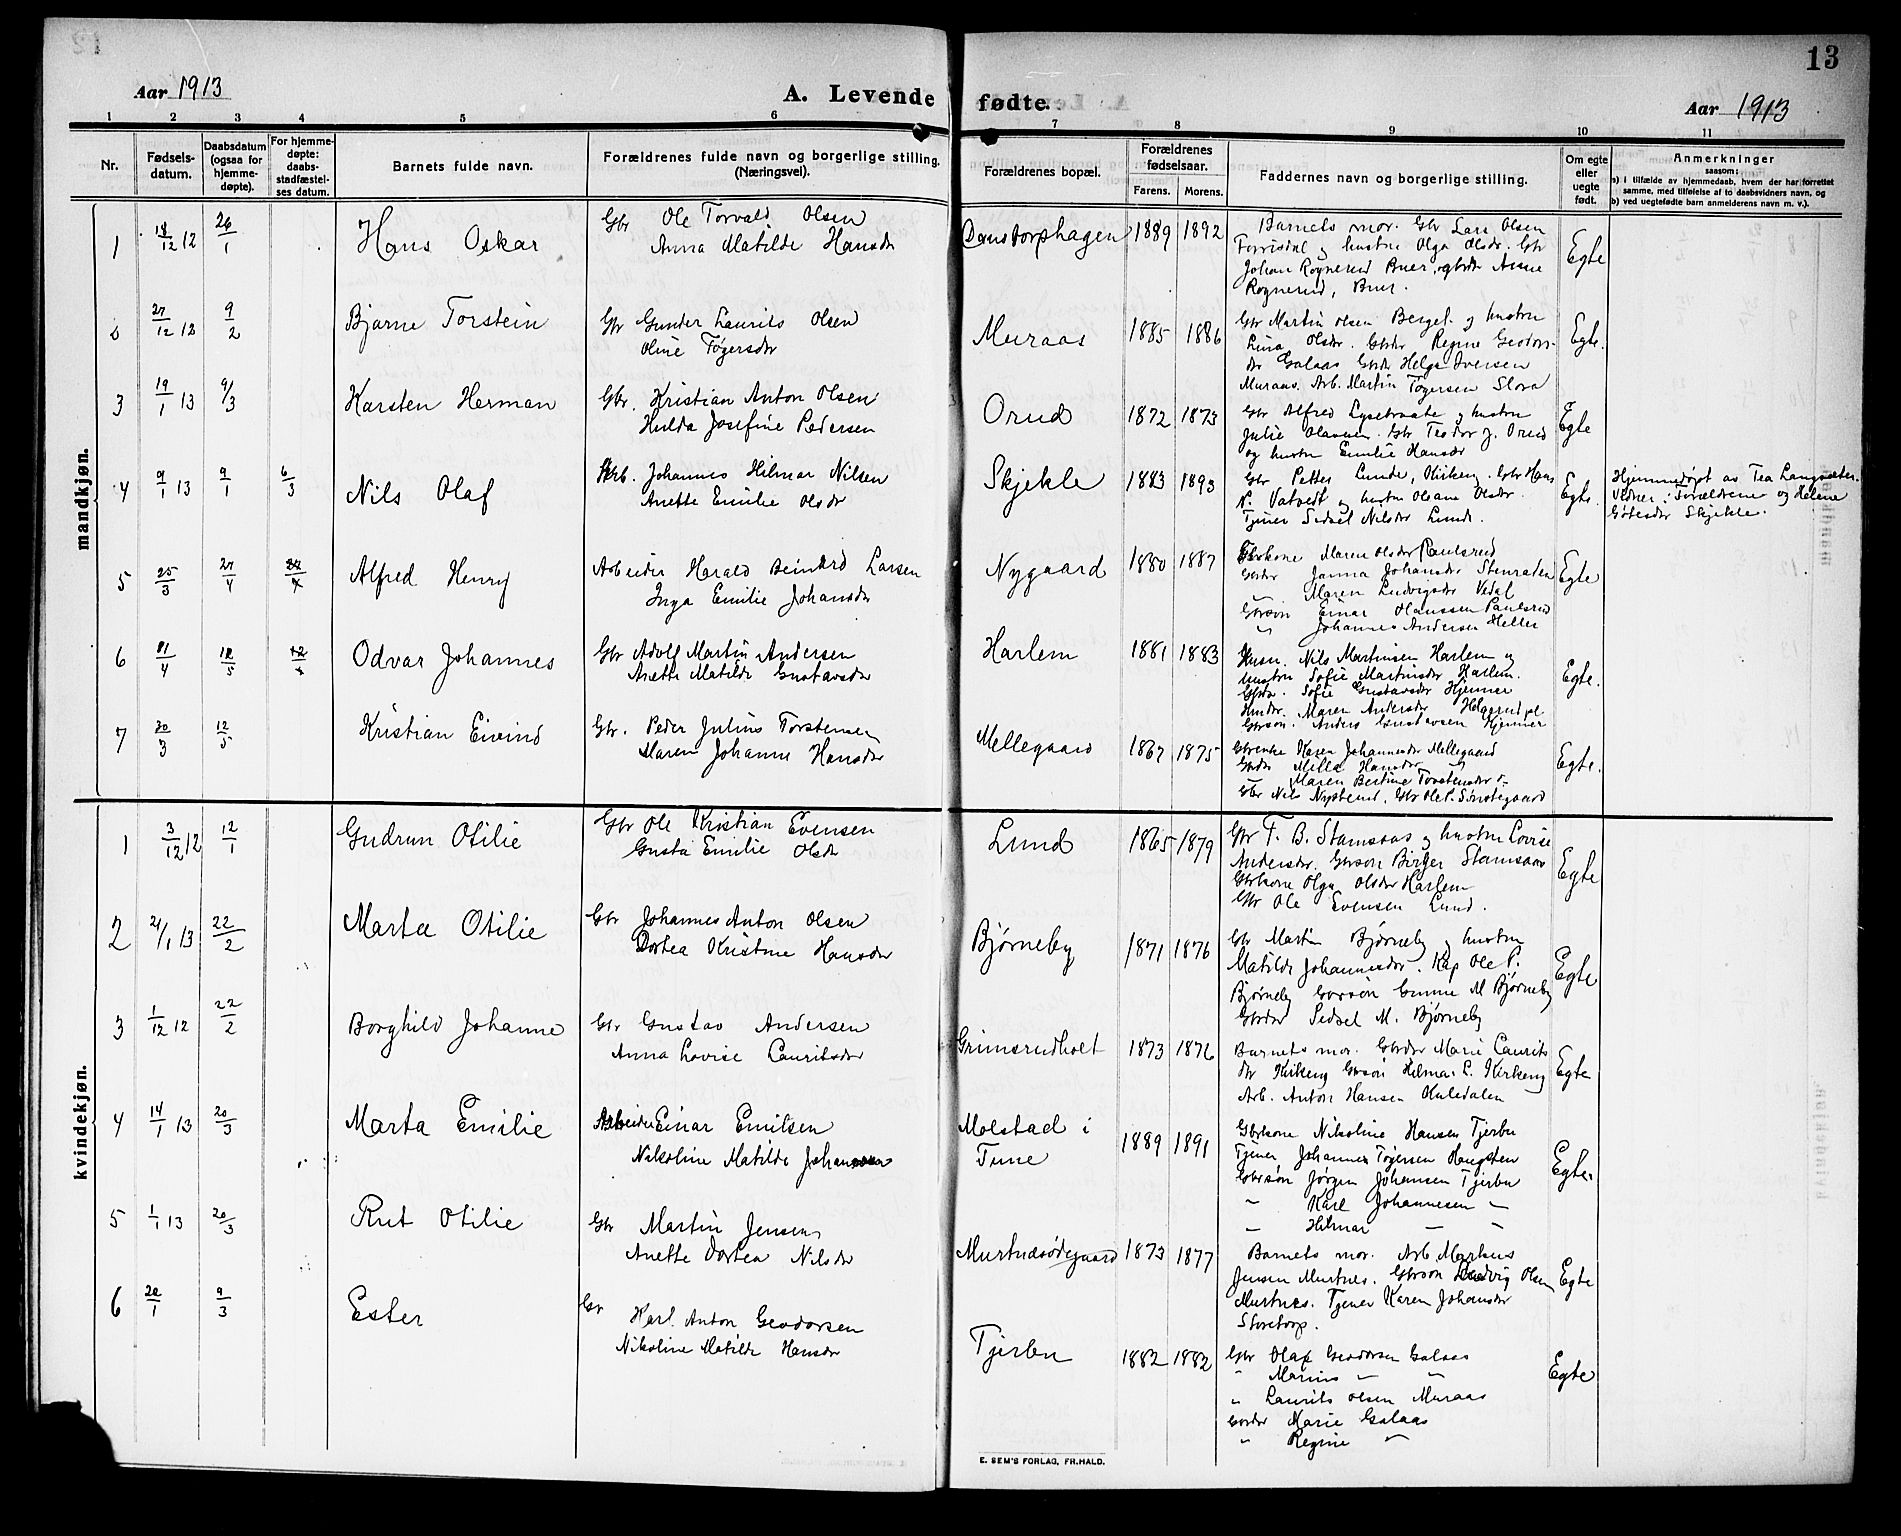 13
Aar 1913
A. Levende fødte.
Aar 1913
1 2 3 4 5 6 7 8 9 10 11
Nr.
Fødsels-
datum.
Daabsdatum
(ogsaa for
hjemme-
døpte).
For hjemme-
døpte:
daabs-
stadfæstel-
ses datum.
Barnets fulde navn.
Forældrenes fulde navn og borgerlige stilling.
(Næringsvei).
Forældrenes bopæl.
Forældrenes
fødselsaar.
Farens. Morens.
Faddernes navn og borgerlige stilling.
Om egte
eller
uegte
født.
Anmerkninger
saasom:
a) i tilfælde av hjemmedaab, hvem der har forrettet
samme, med tilføielse af to daabsvidners navn, og
b) ved uegtefødte barn anmelderens navn m. v.).
mandkjøn.
1 18/12 12 26/1 Hans Oskar Gbr Ole Torvald Olsen Danstorphagen 1889 1892 Barnets mor. Gbr Lars Olsen Egte
Anna Matilde Hansdr
Torrisdal og hustru Olga Olsdr. Gbr
Johan Rognerud Buer, gbrdtr Anne
Rognerud, Buer.
2 27/12 12 9/2 Bjarne Torstein Gbr Gunder Laurits Olsen Muraas 1885 1886 Gbr Martin Olsen Berget og hustru Egte.
Oline Tøgersdr
Lina Olsdr. Gbrdr Regine Geodors-
dr Galaas Gbrdr Helga Iversen
Muraas. Arb. Martin Tøgersen Slora
3 19/1 13 9/3 Karsten Herman Gbr. Kristian Anton Olsen Orud 1872 1873 Gbr Alfred Lysebraate og hustru Egte
Hulda Josefine Pedersen
Julie Olavesen. Gbr Teodor J. Orud
og hustru Emilie Hansdr
4 9/1 13 9/1 6/3 Nils Olaf Arb. Johannes Hilmar Nilsen Skjekle 1883 1893 Gbr Petter Lunde, Kirkeng. Gbr Hans Egte. Hjemmedøpt av Tea Langsæter.
Anette Emilie Olsdr
N. Vatvedt og hustru Olsane Olsdr. Vidner: Forældrene og Helene
Tjener Sedsel Nilsdr Lunde. Gøtesdr Skjekle.
5 25/3 27/4 Alfred Henry Arbeider Harald Beinhard Larsen Nygaard 1880 1887 Gbrkone Maren Olsdr Paulsrud Egte
Inga Emilie Johansdr
Gbrdr Janna Johansdr Stenraden
" Maren Ludvigsdr Vedal
Gbrsøn Einar Hanssen Paulsrud
" Johannes Andersen Heller
6 21/4 12/5 Odvar Johannes Gbr Adolf Martin Andersen Harlem 1881 1883 Husm. Nils Martinsen Harlem og Egte.
Anette Matilde Gustavsdr
hustru Sofie Martinsdr Harlem.
Gbrdr. Sofie Gustavsdr Hjemmer
Husdr. Maren Andersdr Helgerud pl
Gbrsøn. Anders Gustavsen Hjemmer
7 30/3 12/5 Kristian Eivind Gbr. Peder Julius Torstensen Mellegaard 1867 1875 Gbrenke Karen Johannesdr Mellegaard Egte.
Maren Johanne Hansdr
Gbrdr Milla Hansdr "
" Maren Bertine Torstensdr "
Gbr Nils Nystuend. Gbr Ole P. Sønstegaard
kvindekjøn.
1 3/12 12 12/1 Gudrun Otilie Gbr Ole Kristian Evensen Lund 1865 1879 Gbr F. B. Stamsaas og hustru Lovise Egte
Gusta Emilie Olsdr
Andersdr. Gbrsøn Birger Stamsaas
Gbrkone Olga Olsdr Harlem
Gbr Ole Evensen Lund.
2 21/1 13 22/2 Marta Otilie Gbr Johannes Anton Olsen Bjørneby 1871 1876 Gbr Martin Bjørneby og hustru Egte
Dortea Kristine Hansdr
Matilde Johannesdr. Kap Ole P.
Bjørneby Gbrsøn Gunne M Bjørneby
Gbrdr Sedsel M. Bjørneby
3 1/12 12 22/2 Borghild Johanne Gbr Gustav Andersen Grimsrudholt 1873 1876 Barnets mor. Gbrdr Marie Laurits Egte
Anna Lovise Lauritsdr
dr Kirkeng Gbrsøn Hilmar L. Kirkeng
Arb. Anton Hansen Huledalen
4 14/1 13 20/3 Marta Emilie Arbeider Einar Emilsen Molstad i 1889 1891 Gbrkone Nikoline Hansen Tjerbu Egte.
Nikoline Matilde Johannesen Tune
Tjener Johannes Tøgersen Haugsten
Gbrsøn Jørgen Johansen Tjerbu
" Karl Johannesen "
" Hilmar " "
5 1/1 13 20/3 Rut Otilie Gbr Martin Jensen Murtnesødegaard 1873 1877 Barnets mor. Arb. Markus Egte
Anette Dortea Nilsdr
Jensen Murtnes. Gbrsøn Ludvig Olsen
Murtnes. Tjener Karen Johansdr
Storetorp.
6 20/1 9/3 Ester Gbr Karl Anton Geodorsen Tjerbu 1882 1882 Gbr Olaf Geodorsen Galaas Egte
Nikoline Matilde Hansdr
" Marius " "
" Laurits Olsen Muraas
Gbrdr Marie Galaas
" Regine "
E. SEM'S FORLAG, FR.HALD.